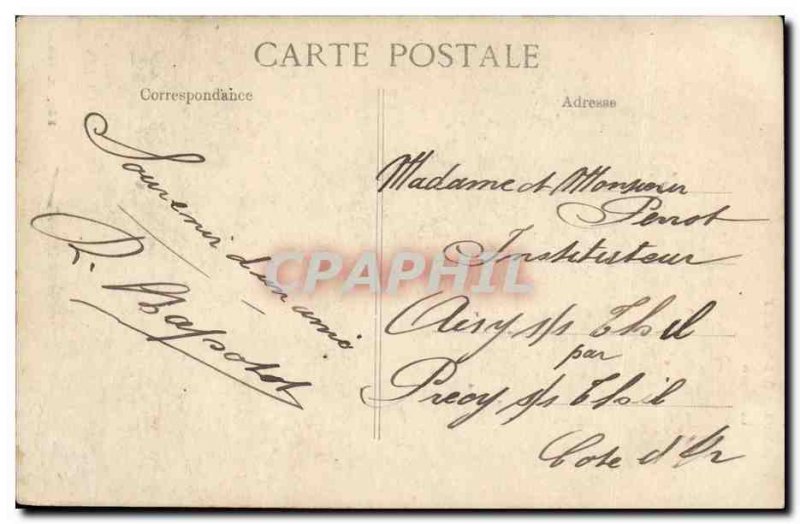 CARTE POSTALE
Correspondance
Adresse
Souvenir d'un ami
Madame et Monsieur
Perrot
Instituteur
Aisy s/s Thil
par
Précy s/s Thil
Cote d'Or
CPAPHIL